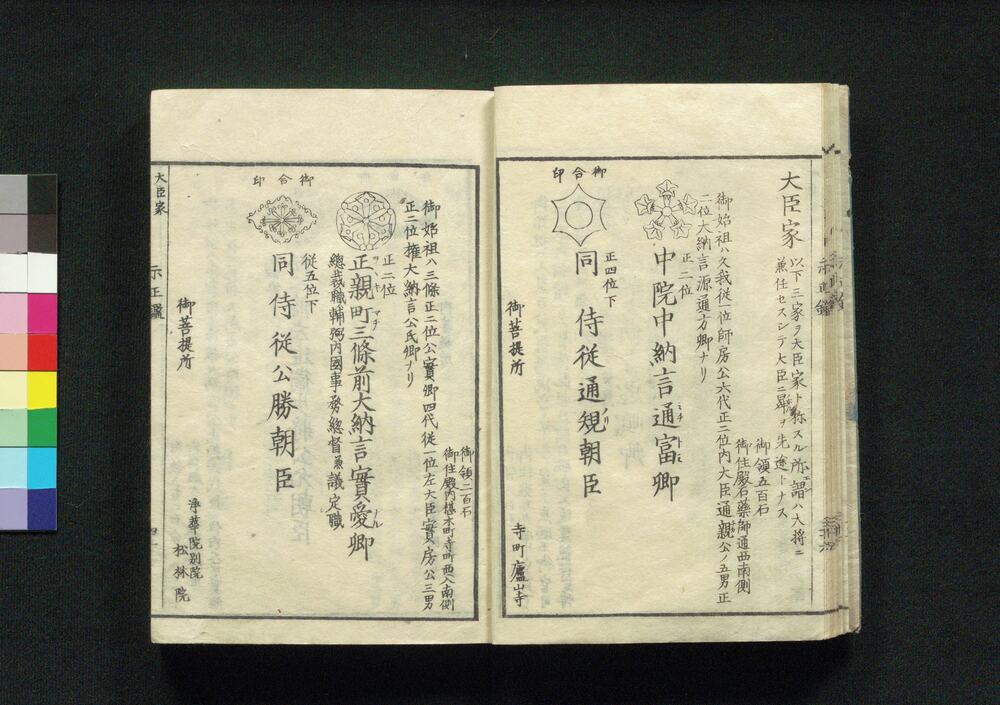 大臣家
以下三家ヲ大臣家ト称スル所謂ハ大将ニ
兼任セスシテ大臣ニ昇ヲ先途トナス
御領五百石
御住殿石薬師通西南側
御始祖ハ久我従一位師房公六代正二位内大臣通親公ノ五男正
二位大納言源通方卿ナリ
正二位
中院中納言通富卿
ミチトミ
正四位下
同侍従通規朝臣
ノリ
御合印
御菩提所
寺町廬山寺
御領二百石
御住殿内椹木町寺町西入南側
御始祖ハ三條正二位公實卿四代従一位左大臣實房公三男
正二位権大納言公氏卿ナリ
正二位
正親町三條前大納言實愛卿
マチ
ナル
總裁職輔弼内國事務總督兼議定職
従五位下
同侍従公勝朝臣
御合印
御菩提所
浄華院別院
松林院
大臣家